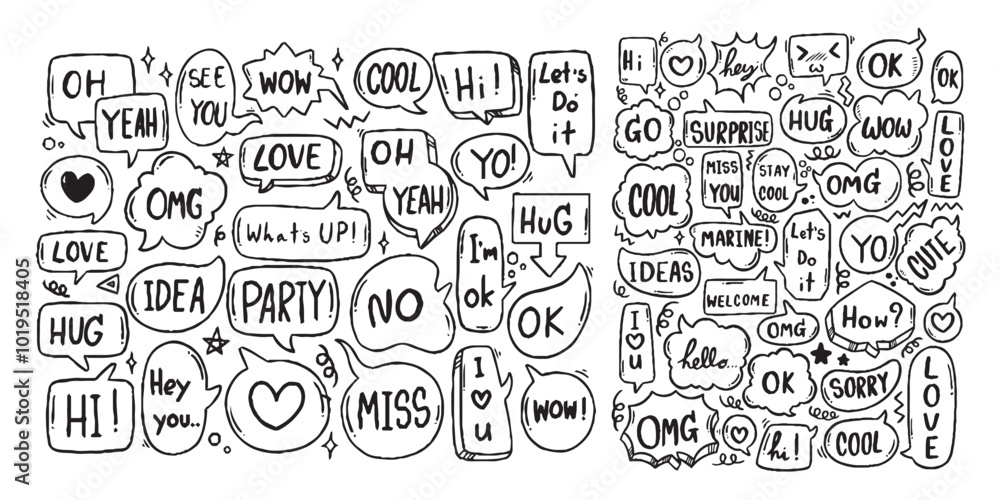 OH
YEAH
SEE
YOU
WOW
COOL
Hi!
Let's
Do
it
OMG
LOVE
OH
YEAH
YO!
LOVE
What's UP!
I'm
ok
HUG
IDEA
PARTY
NO
OK
HUG
HI!
Hey
you..
MISS
I
u
WOW!
Hi
hey
OK
OK
GO
SURPRISE
HUG
WOW
LOVE
COOL
MISS
YOU
STAY
COOL
OMG
MARINE!
Let's
Do
it
YO
CUTE
IDEAS
WELCOME
I
U
OMG
How?
hello...
OK
SORRY
LOVE
OMG
hi!
COOL
Adobe Stock | #1019518405
Adobe Stock